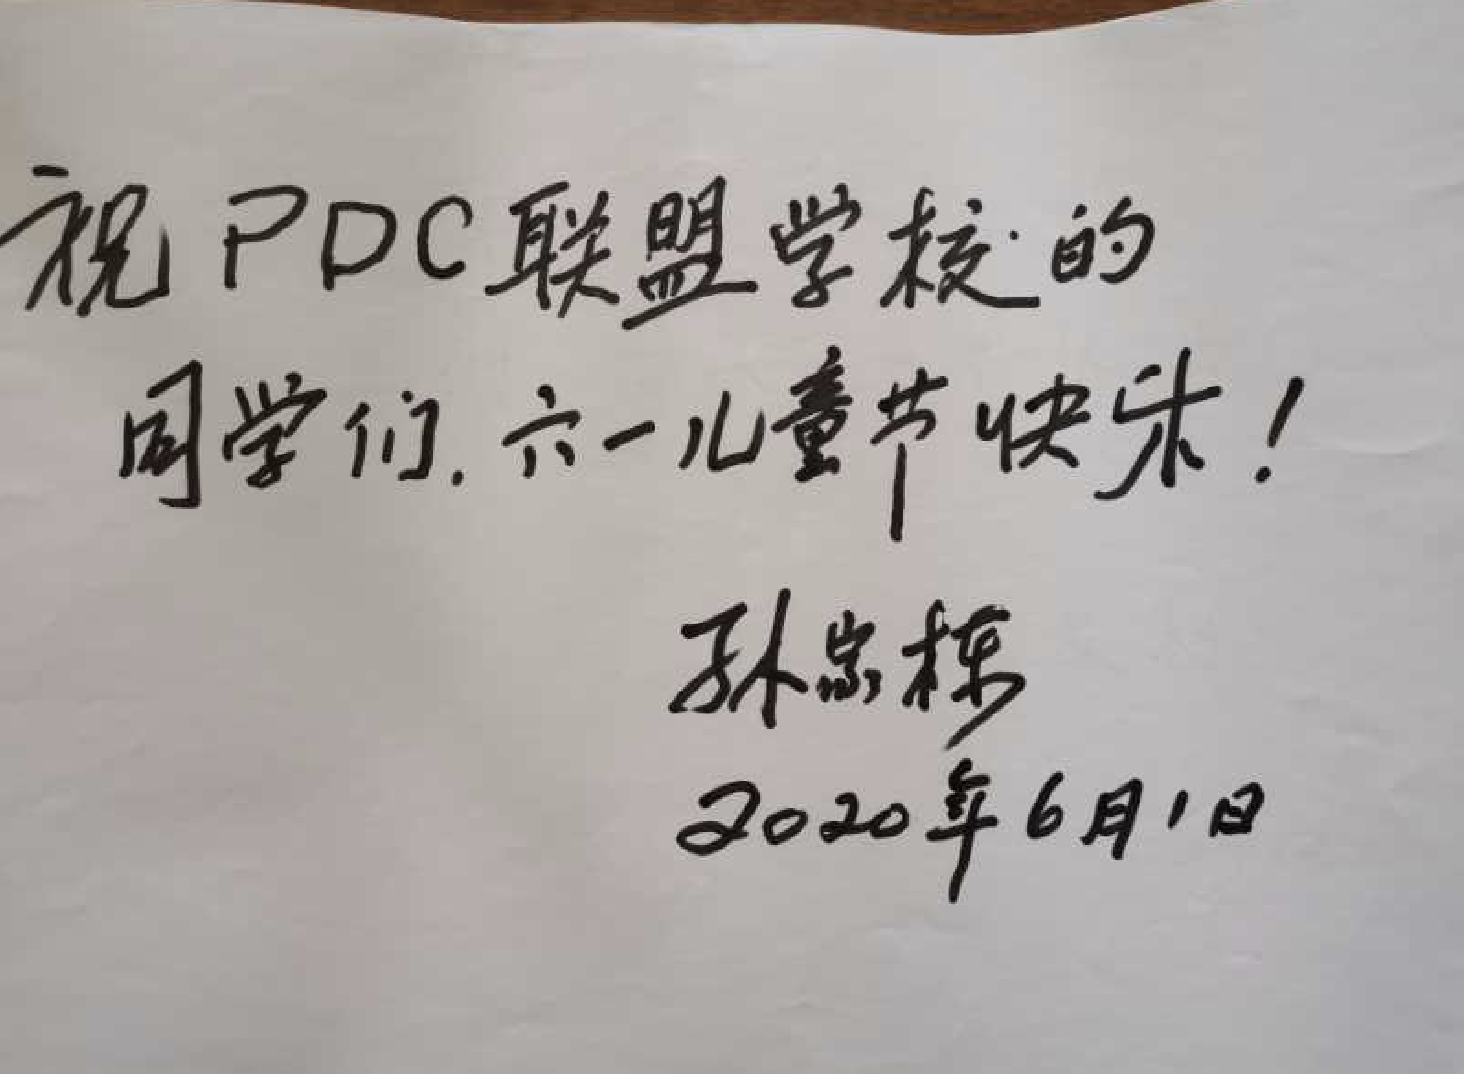 祝PDC联盟学校的
同学们.六一儿童节快乐!
孙家栋
2020年6月1日